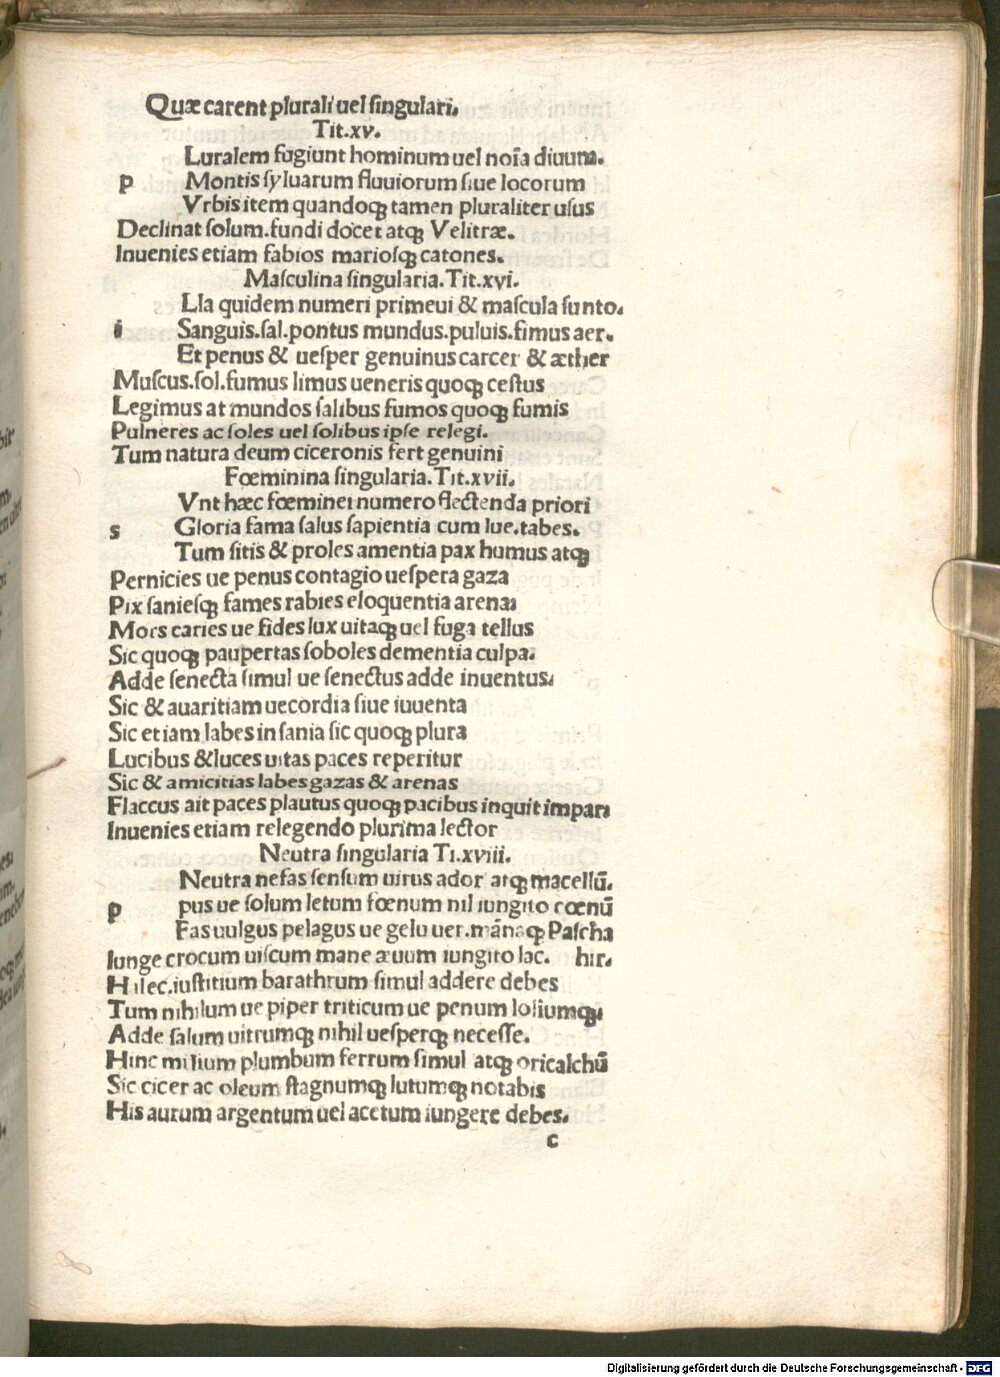 Quæ carent plurali uel ſingulari.
Tit.xv.
Luralem fugiunt hominum uel noı̃a diuum.
p Montis ſyluarum fluuiorum ſiue locorum
Vrbis item quandoqꝫ tamen pluraliter uſus
Declinat ſolum.fundi docet atqꝫ Velitræ.
Inuenies etiam fabios marioſqꝫ catones.
Maſculina ſingularia.Tit.xvi.
Lla quidem numeri primeui & maſcula ſunto.
i Sanguis.ſal.pontus mundus.puluis.fimus aer.
Et penus & ueſper genuinus carcer & æther
Muſcus.ſol.fumus limus ueneris quoqꝫ ceſtus
Legimus at mundos ſalibus fumos quoqꝫ fumis
Pulneres ac ſoles uel ſolibus ipſe relegi.
Tum natura deum ciceronis fert genuini
Fœminina ſingularia.Tit.xvii.
Vnt hæc fœminei numero flectenda priori
s Gloria fama ſalus ſapientia cum lue.tabes.
Tum ſitis & proles amentia pax humus atqꝫ
Pernicies ue penus contagio ueſpera gaza
Pix ſanieſqꝫ fames rabies eloquentia arena:
Mors caries ue fides lux uitaqꝫ uel fuga tellus
Sic quoqꝫ paupertas ſoboles dementia culpa.
Adde ſenecta ſimul ue ſenectus adde inuentus.
Sic & auaritiam uecordia ſiue iuuenta
Sic etiam labes inſania ſic quoqꝫ plura
Lucibus & luces uitas paces reperitur
Sic & amicitias labes gazas & arenas
Flaccus ait paces plautus quoqꝫ pacibus inquit impar:
Inuenies etiam relegendo plurima lector
Neutra ſingularia Ti.xviii.
Neutra nefas ſenſum uirus ador atqꝫ macellũ.
p pus ue ſolum letum fœnum nil iungito cœnũ
Fas uulgus pelagus ue gelu uer.mãnaqꝫ Paſcha
Iunge crocum uiſcum mane æuum iungito lac. hir.
Hilec.iuſtitium barathrum ſimul addere debes
Tum nihilum ue piper triticum ue penum loliumqꝫ
Adde ſalum uitrumqꝫ nihil ueſperqꝫ neceſſe.
Hinc milium plumbum ferrum ſimul atqꝫ oricalchũ
Sic cicer ac oleum ſtagnumqꝫ lutumqꝫ notabis
His aurum argentum uel acetum iungere debes.
c
Digitalisierung gefördert durch die Deutsche Forschungsgemeinschaft - DFG